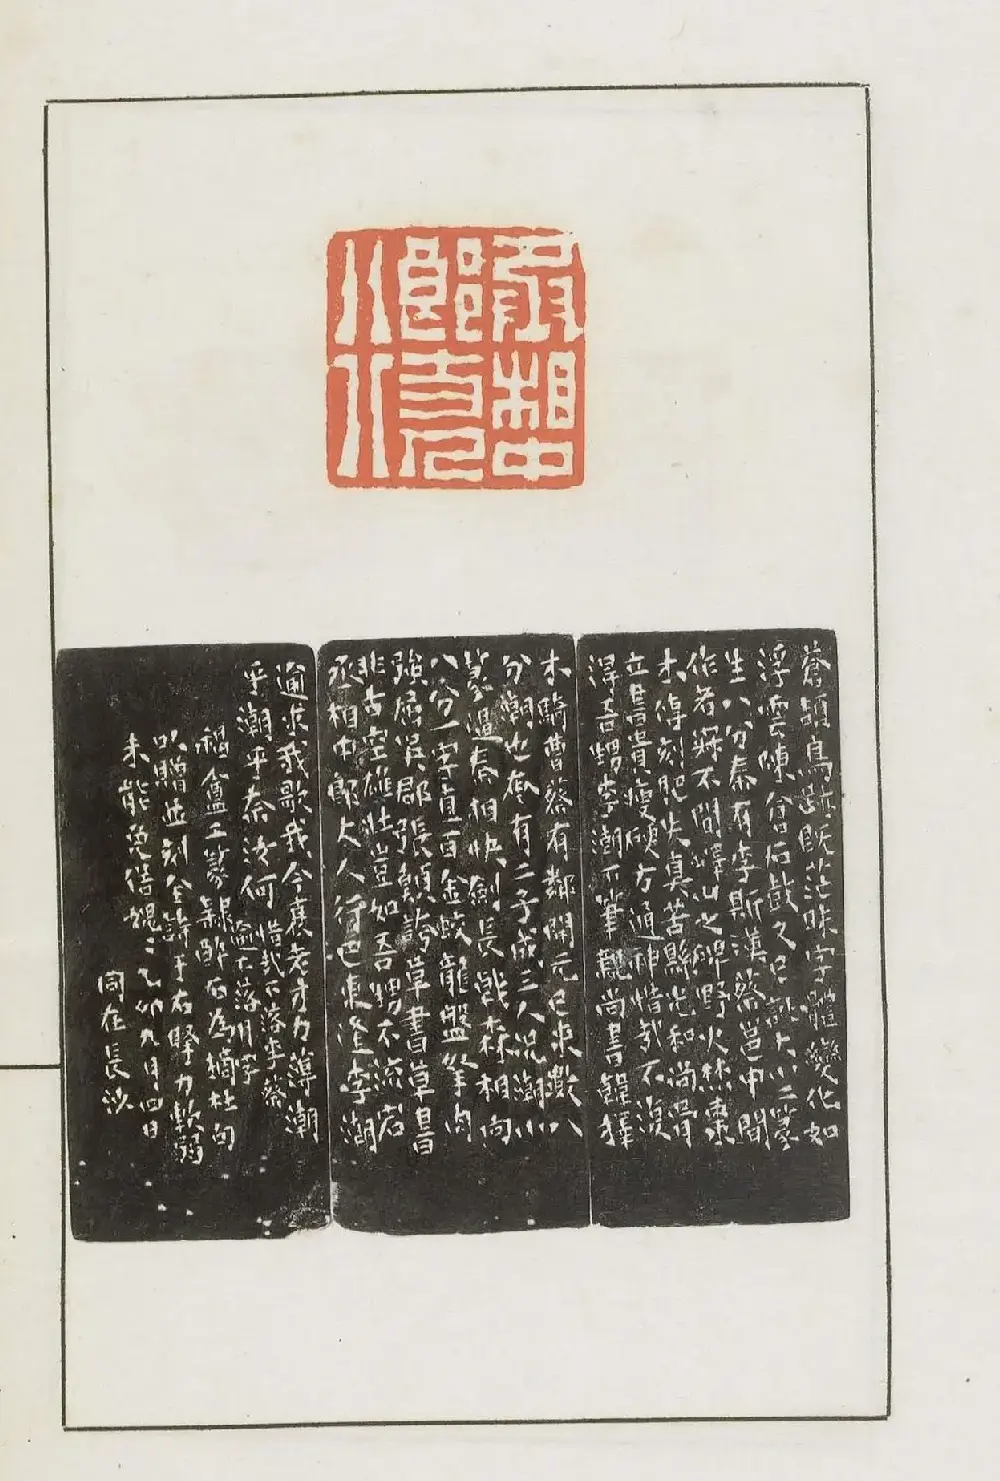 丞相中
郎丈人
行
蒼頡鳥跡既茫昧字體變化如
浮雲陳倉石鼓久已訛大小二篆
生八分秦有李斯漢蔡邕中間
作者寂不聞嶧山之碑野火焚棗
木傳刻肥失真苦縣光和尚骨
立書貴瘦硬方通神惜哉不復
得吾甥李潮下筆親尚書韓擇
木騎曹蔡有鄰開元已來數八
分潮也奄有二子成三人況潮小
篆逼秦相快劍長戟森相向
八分一字直百金蛟龍盤拏肉
強屈吳郡張顛誇草書草書
非古空雄壯豈如吾甥不流宕
丞相中郎丈人行巴東逢李潮
逾求我歌我今衰老才力薄潮
乎潮乎奈汝何 惜哉下落李蔡
逾上落月字
工篆隸酔石為摘杜句
以贈並刻全詩于右擘力軟弱
未能免俗媿〻乙卯九月四日
同在長沙